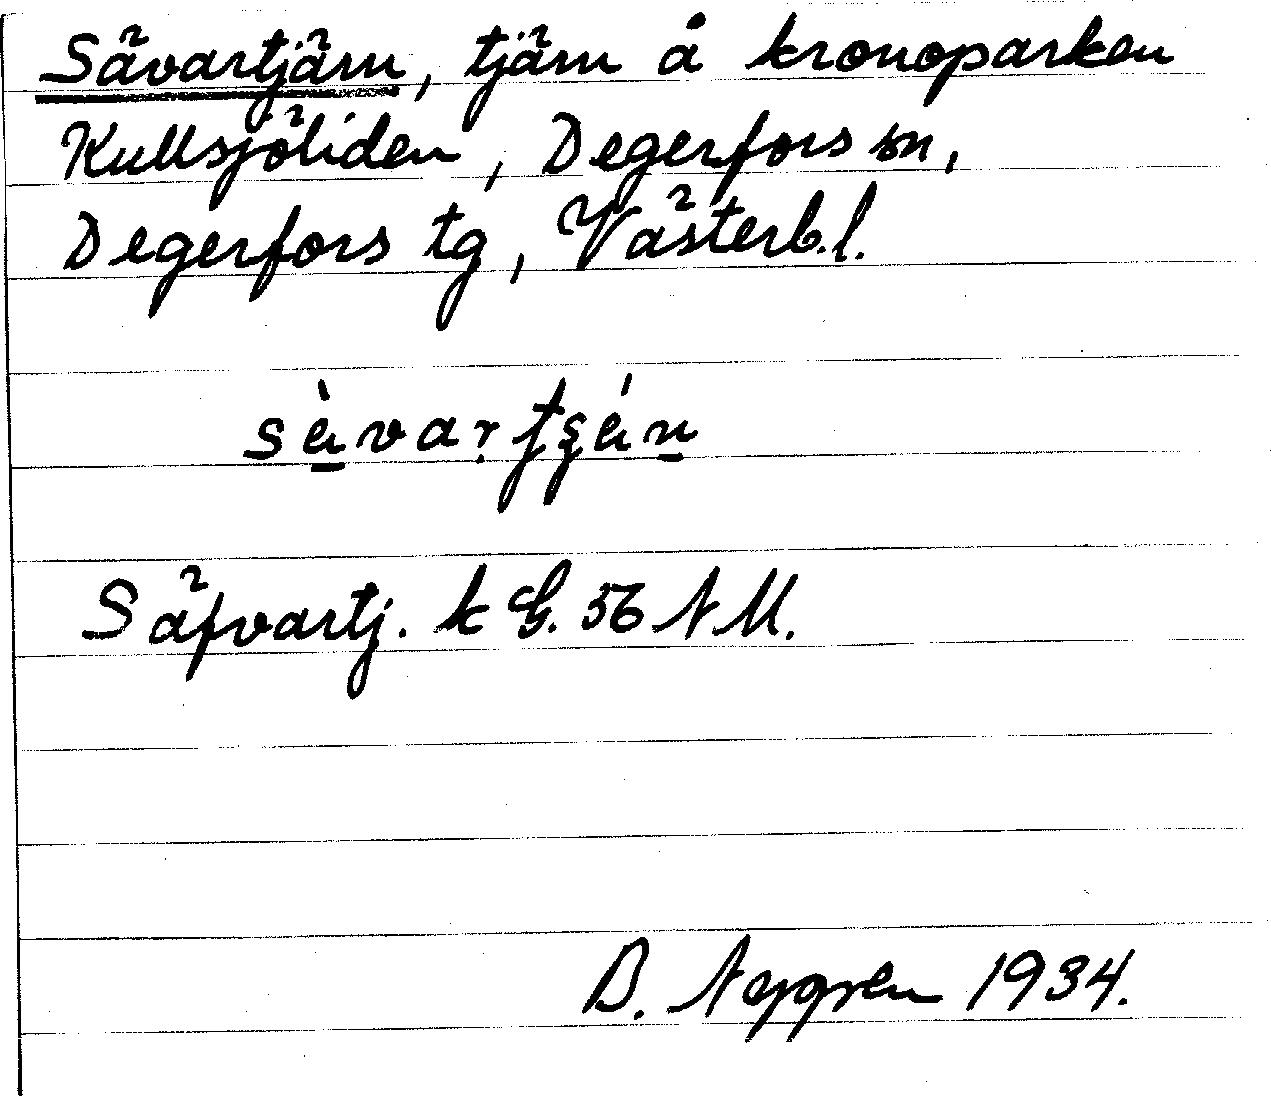 Sävartjärn, tjärn å kronoparken
Kullsjöliden, Degerfors sn,
Degerfors tg, Västerb.l.
Säfvartj. k G. 56 NM.
B. 1934.